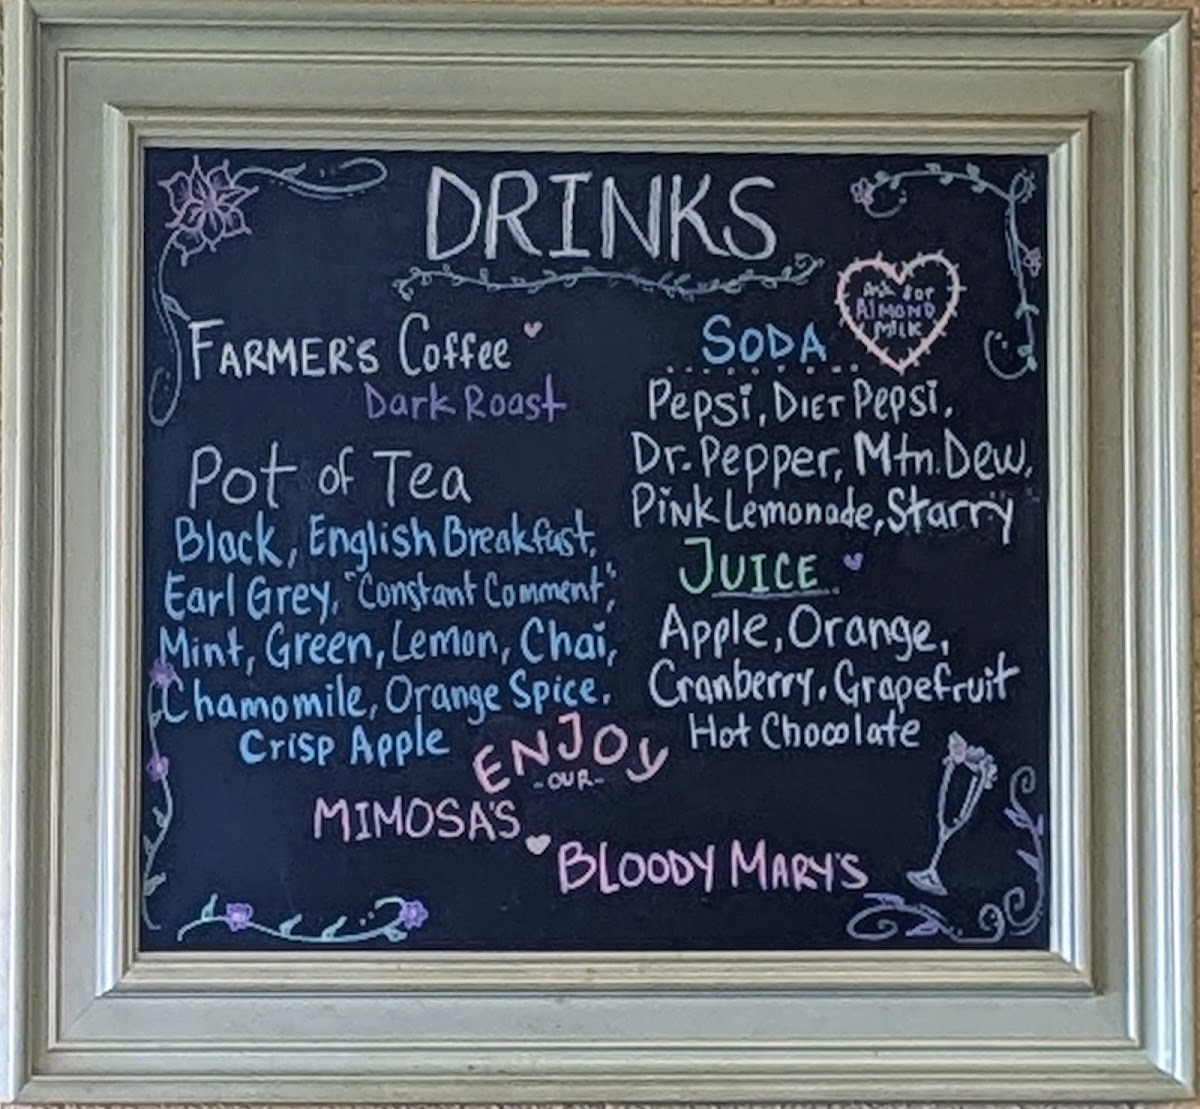 DRINKS
FARMER'S Coffee
Dark Roast
Pot of Tea
Black, English Breakfast,
Earl Grey, "Constant Comment",
Mint, Green, Lemon, Chai,
Chamomile, Orange Spice,
Crisp Apple
Ask for
AlMOND
MilK
SODA
Pepsi, DIET Pepsi,
Dr. Pepper, Mtn. Dew,
Pink Lemonade, Starry
JUICE
Apple, Orange,
Cranberry, Grapefruit
Hot Chocolate
ENJOy
-OUR-
MIMOSA'S
BLOODY MARY'S